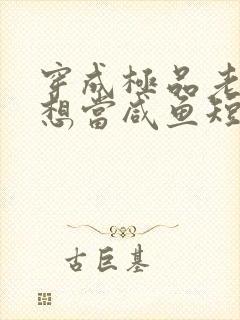 穿成極品老
想當咸鱼短
古巨基